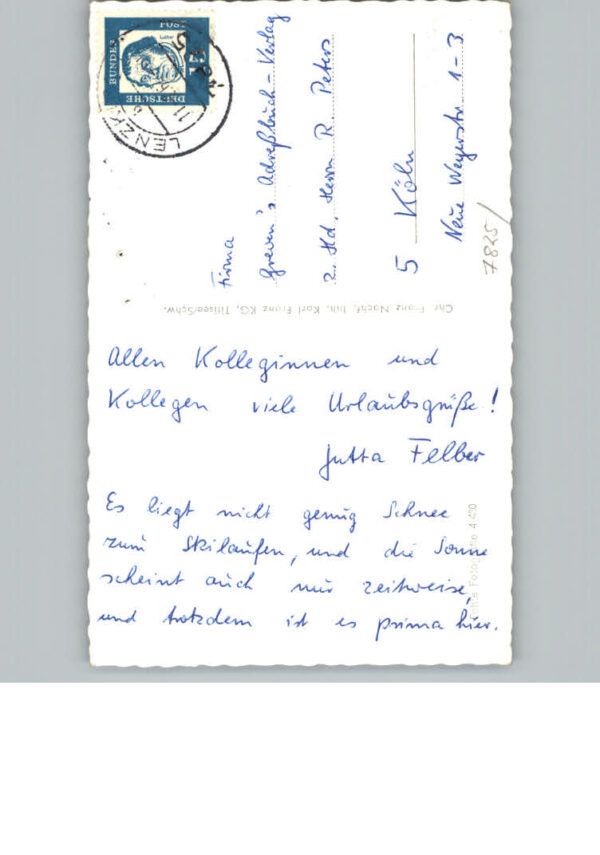 Allen Kolleginnen und
Kollegen viele Urlaubsgrüße!
Jutta Felber
Es liegt nicht genug Schnee
zum Skilaufen, und die Sonne
scheint auch nur zeitweise,
und trotzdem ist es prima hier.
Firma
Greven's Adreßbuch-Verlag
z. Hd. Herrn R. Peters
5 Köln
Neue Weyerstr. 1-3
7825/
Chr. Franz Nachf. Inh. Karl Franz KG, Titisee/Schw.
DEUTSCHE
BUNDES
POST
15
Luther